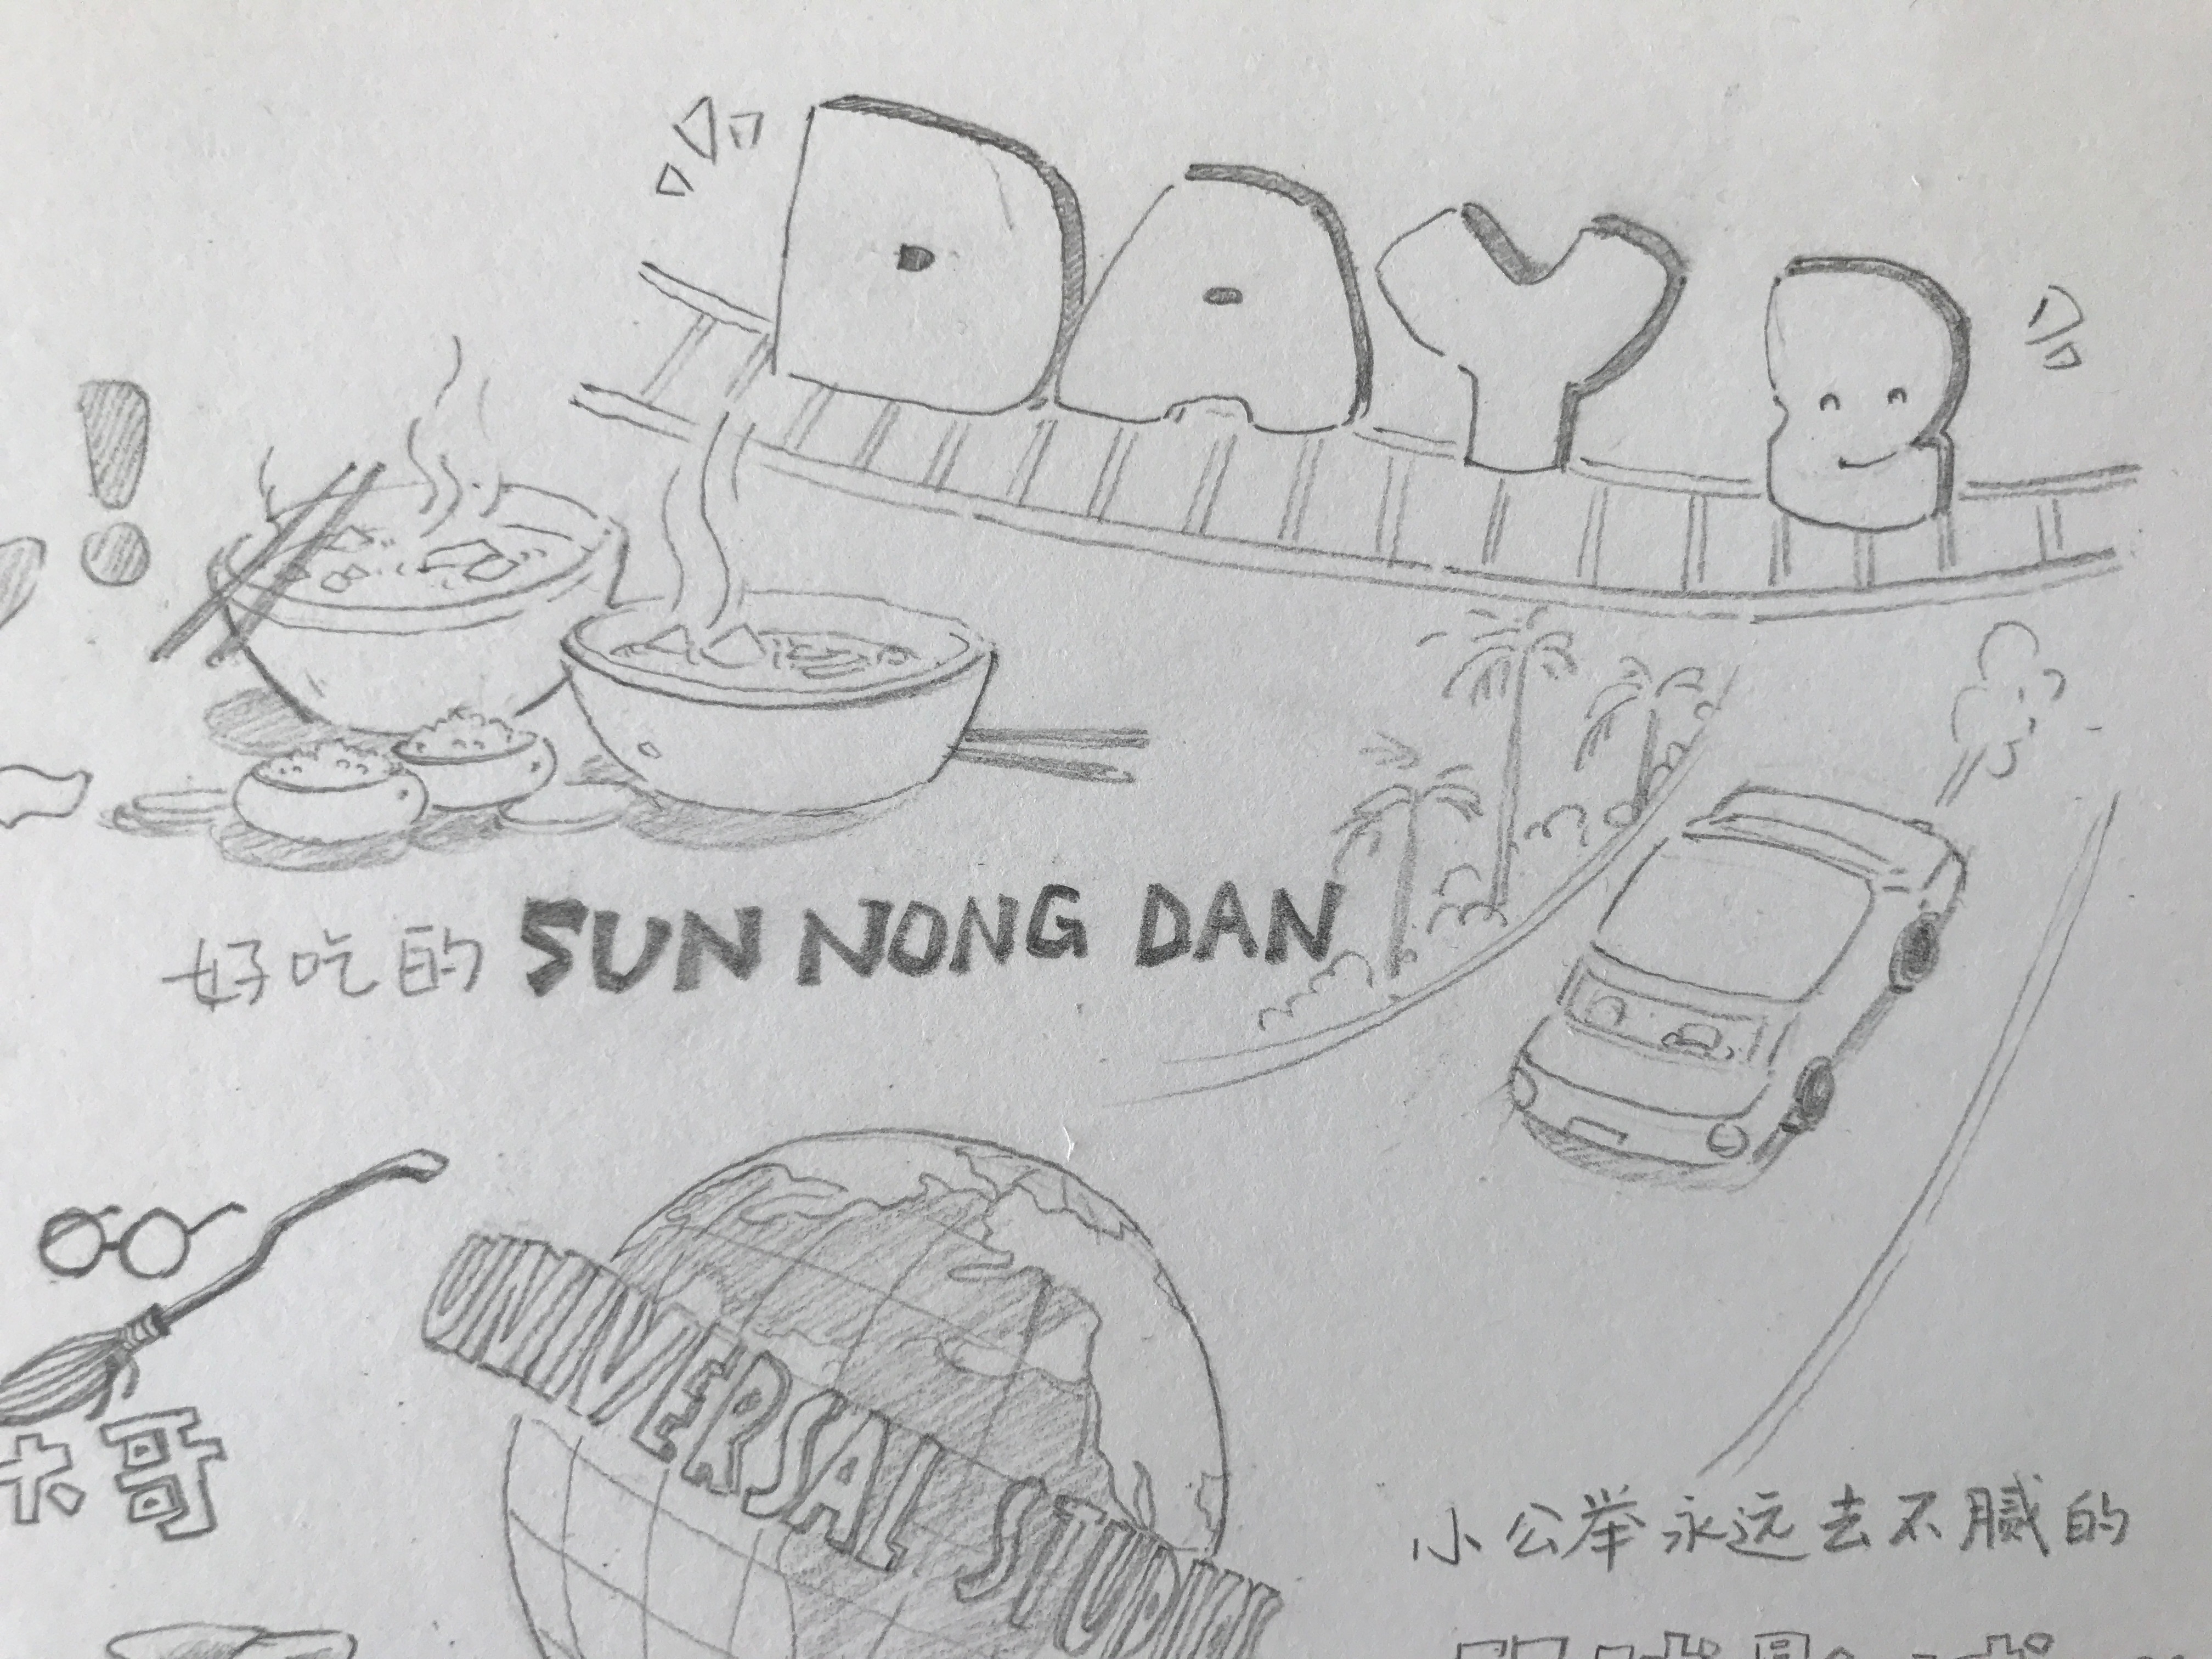 DAY 1
好吃的 SUN NONG DAN
UNIVERSAL STUDIOS
哥
小公举永远去不腻的